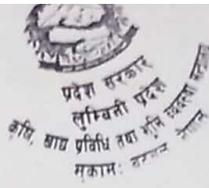 प्रदेश सरकार
लुम्बिनी प्रदेश
कृषि, खाद्य प्रविधि तथा भूमि व्यवस्था मन्त्रालय
मुकाम: बुटवल नेपाल